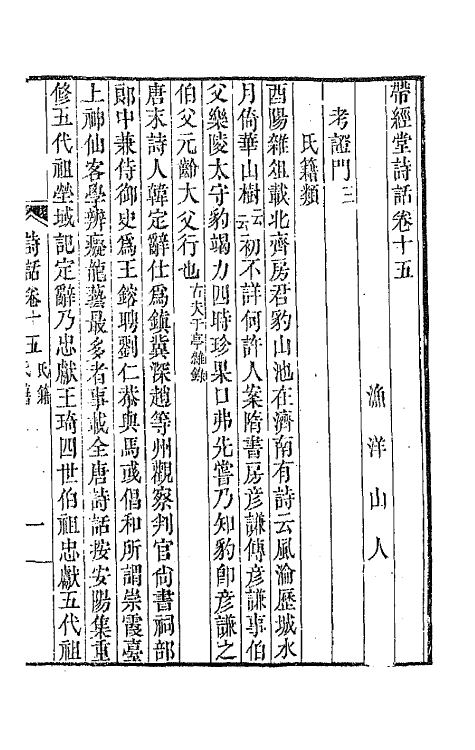 帶經堂詩話卷十五
漁洋山人
考證門三
氏籍類
酉陽雜俎載北齊房君豹山池在濟南有詩云風淪歷城水
月倚華山樹云云初不詳何許人案隋書房彦謙傳彦謙事伯
父樂陵太守豹竭力四時珍果口弗先嘗乃知豹卽彦謙之
伯父元齡大父行也古夫于亭雜錄
唐末詩人韓定辭仕爲鎭冀深趙等州觀察判官尙書祠部
郞中兼侍御史爲王鎔聘劉仁恭與馬彧倡和所謂崇霞臺
上神仙客學辨癡龍藝最多者事載全唐詩話按安陽集重
修五代祖塋域記定辭乃忠獻王琦四世伯祖忠獻五代祖
詩話卷十五 氏籍 一